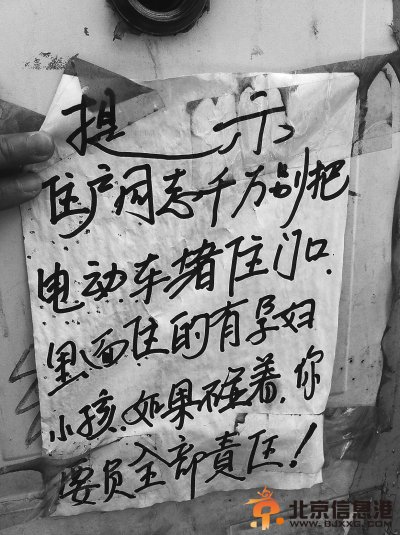 提示
住户同志千万别把
电动车堵住门口.
里面住的有孕妇
小孩.如果碰着.你
要负全部责任!
北京信息港
WWW.BJXXG.COM